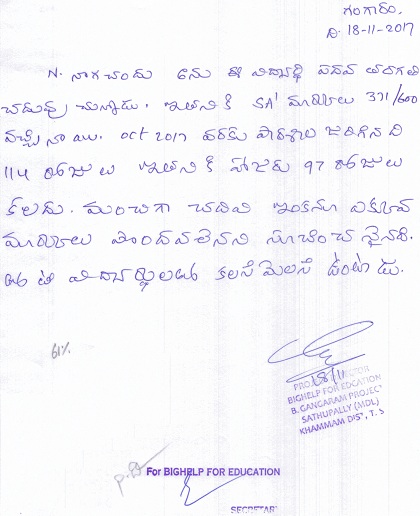 గంగారం.
ది. 18-11-2017
N. నాగచందు అను ఈ విద్యార్థి పదవ తరగతి
చదువు చున్నాడు. ఇతనికి SA' మార్కులు 371/600
వచ్చి నాయి. oct 2017 వరకు పాఠశాల జరిగిన ది
114 రోజు లు ఇతని కి హాజరు 97 రోజులు
కలదు. మంచిగా చదివి ఇంకనూ ఎక్కువ
మార్కులు పొందవలెనని సూచించ నైనది.
తోటి విద్యార్థులతో కలసి మెలసి ఉంటాడు.
61%
18/11
BIGHELP FOR EDCATION
B. GANGARAM PROJECT
SATHUPALLY (MDL)
KHAMMAM DIST, T.S
For BIGHELP FOR EDUCATION
SECRETAR